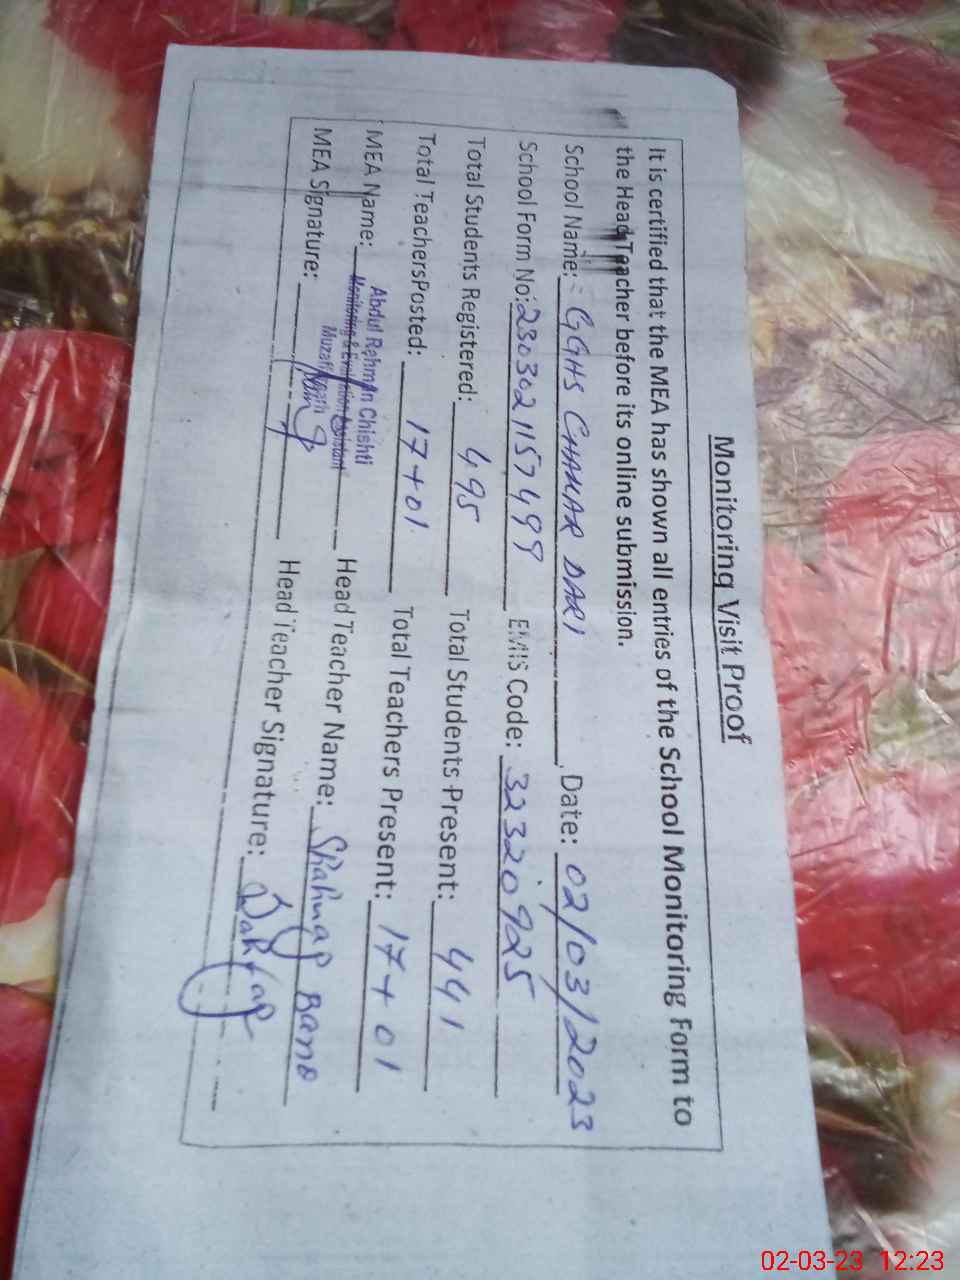 Monitoring Visit Proof
It is certified that the MEA has shown all entries of the School Monitoring Form to
the Head Teacher before its online submission.
School Name: GGHS CHAMAR DARI Date: 02/03/2023
School Form No: 2303021157499 EMIS Code: 32320925
Total Students Registered: 495 Total Students Present: 441
Total TeachersPosted: 17+01 Total Teachers Present: 17+01
MEA Name: Abdul Rehman Chishti Head Teacher Name: Bano
Monitoring & Evaluation Assistant
Muzaffargarh
MEA Signature: Head Teacher Signature:
02-03-23 12:23